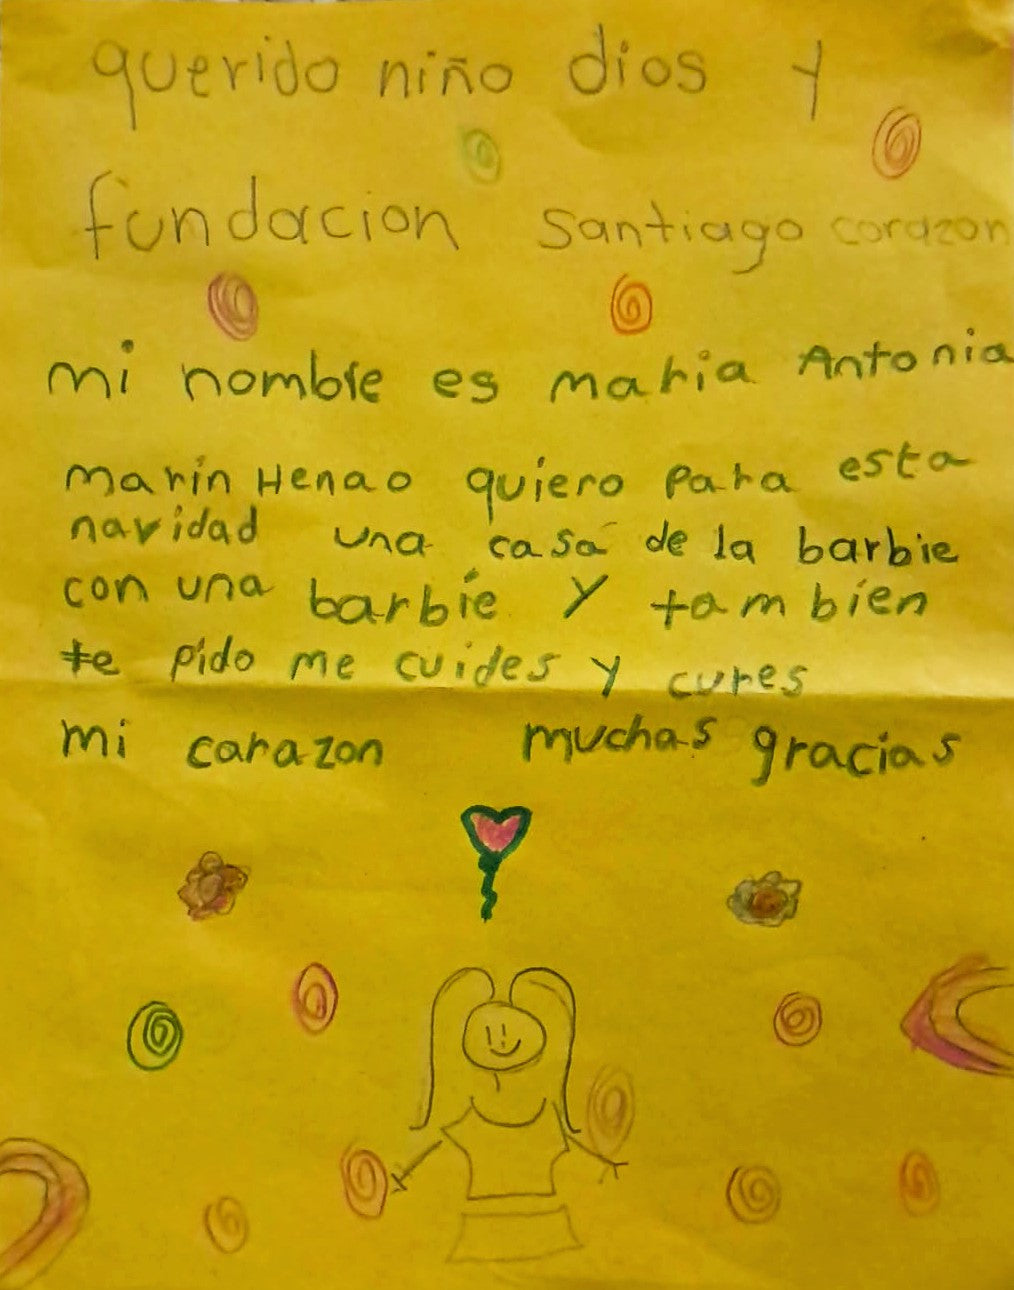 querido niño dios y
fundacion santiago corazon
mi nombre es maria Antonia
marin Henao quiero para esta
navidad una casa de la barbie
con una barbie y tambien
te pido me cuides y cures
mi carazon muchas gracias